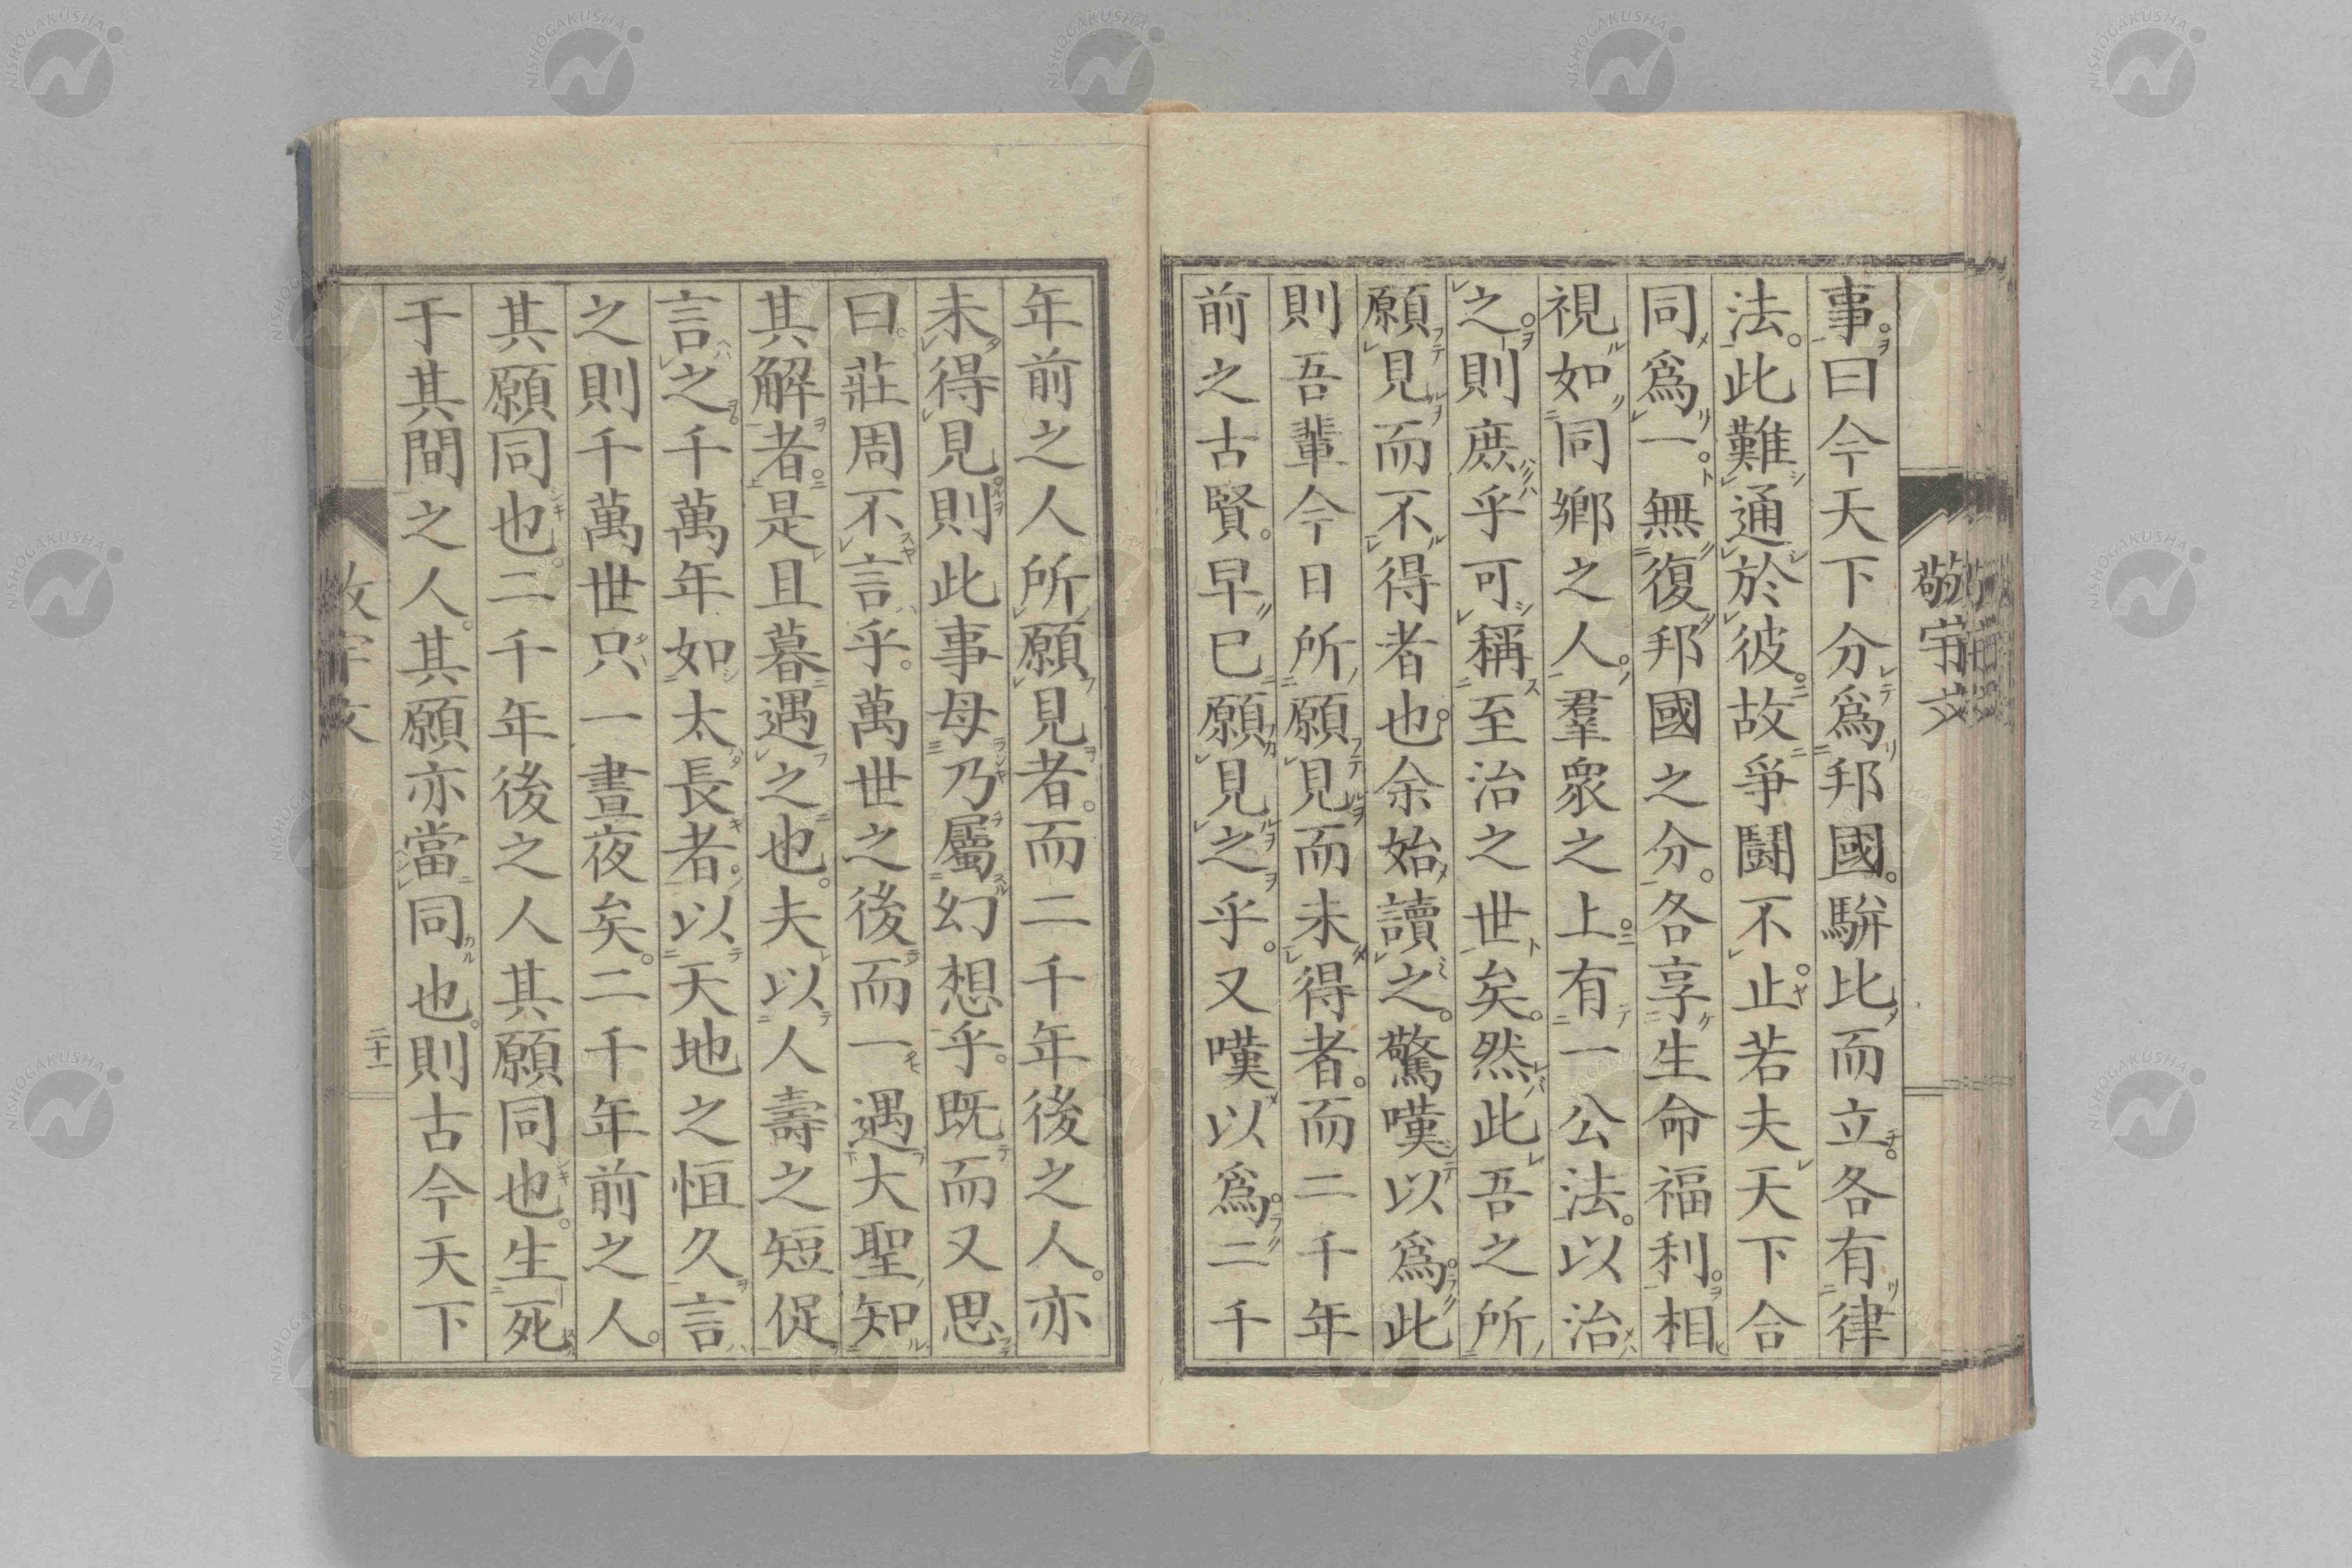 敬宇文
事。曰今天下分爲邦國。駢比而立。各有律
法。此難通於彼。故爭鬪不止。若夫天下合
同爲一。無復邦國之分。各享生命福利。相
視如同鄉之人。羣衆之上。有一公法。以治
之。則庶乎可稱至治之世矣。然此吾之所
願見而不得者也。余始讀之。驚嘆以爲。此
則吾輩今日所願見而未得者。而二千年
前之古賢。早已願見之乎。又嘆以爲。二千
年前之人所願見者。而二千年後之人。亦
未得見。則此事毋乃屬幻想乎。既而又思
曰。莊周不言乎。萬世之後而一遇大聖知
其解者。是且暮遇之也。夫以人壽之短促
言之。千萬年如太長者。以天地之恒久言
之則千萬世只一晝夜矣。二千年前之人。
其願同也。二千年後之人其願同也。生死
于其間之人。其願亦當同也。則古今天下
敬宇文
二十一
NISHOGAKUSHA